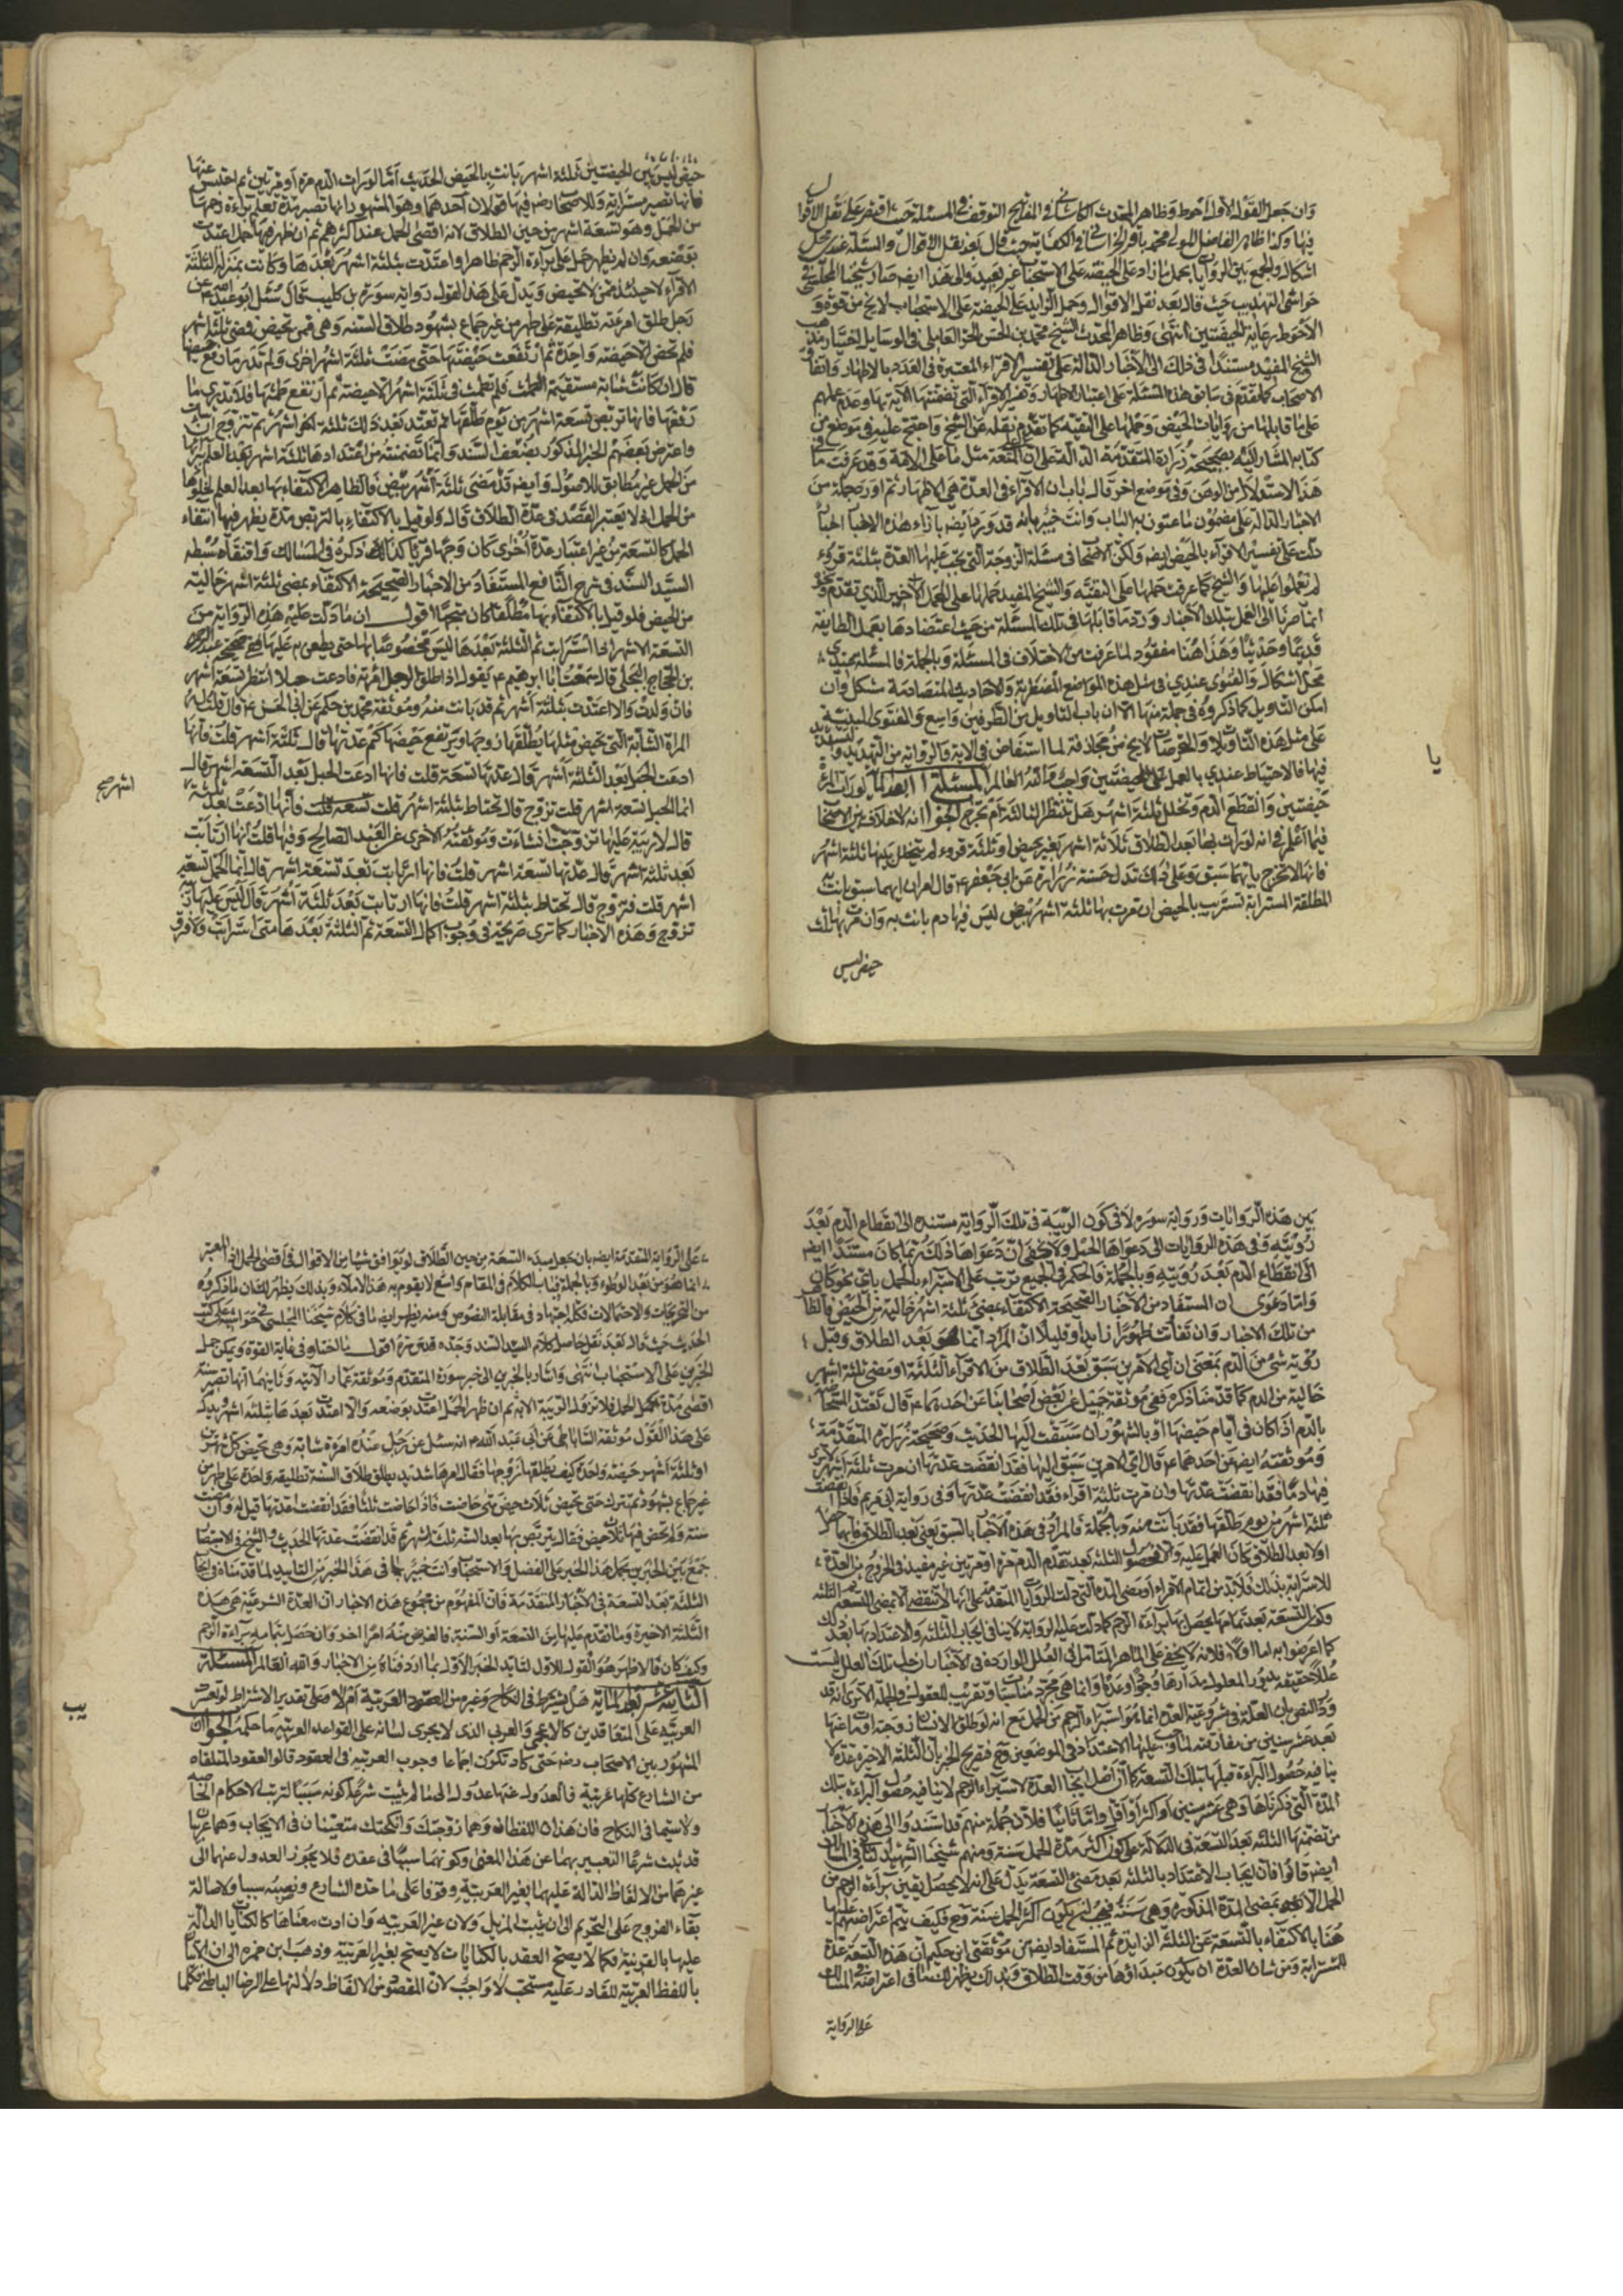 وان جعل القول الاول احوط وظاهر المحدث الكاشاني في المفاتيح التوقف في المسئلة حيث اقتصر على نقل الاقوال
فيها وكذا ظاهر الفاضل المولى محمد باقر الخراساني في الكفاية حيث قال بعد نقل الاقوال والمسئلة عندي محل
اشكال والجمع بين الروايات بحمل ما زاد على الحيضة على الاستحباب غير بعيد والى هذا ايضا صار شيخنا المجلسي في
حواشي التهذيب حيث قال بعد نقل الاقوال وحمل الزايد على الحيضة على الاستحباب لا يخ من قوة و
الاحوط رعاية الحيضتين انتهى وظاهر المحدث الشيخ محمد بن الحسن الحر العاملي في الوسايل اختيار مذهب
الشيخ المفيد مستندا في ذلك الى الاخبار الدالة على تفسير الاقراء المعتبرة في العدد بالاطهار واتفاق
الاصحاب كما تقدم في سابق هذه المسئلة على اعتبار الاطهار وتفسير الاقراء التي تضمنتها الآية بها وعدم عملهم
على ما قابلها من روايات الحيض وحملها على التقية كما تقدم نقله عن الشيخ واحتج عليه في موضع من
كتابه المشار اليه بصحيحة زرارة المتقدمة الدالة على ان على المتعة مثل ما على الامة وقد عرفت ما في
هذا الاستدلال من الوهن وفي موضع اخر قال باب ان الاقراء في العدة هي الاطهار ثم اورد جملة من
الاخبار الدالة على مضمون ما عنون به الباب وانت خبير بانه قد ورد ايضا بازاء هذه الاخبار اخبار
دلت على تفسير الاقراء بالحيض ايضا ولكن الاصحاب في مسئلة الزوجة التي يجب عليها العدة بثلثة قروء
لم يعملوا عليها والشيخ كما عرفت حملها على التقية والشيخ المفيد حملها على المحمل الاخير الذي تقدم ونحن
انما صرنا الى العمل بتلك الاخبار ورد ما قابلها في تلك المسئلة من حيث اعتضادها بعمل الطايفة
قديما وحديثا وهذا هنا مفقود لما عرفت من الاختلاف في المسئلة وبالجملة فالمسئلة عندي
محل اشكال والفتوى عندي في مثل هذه المواضع المضطربة والاحاديث المتصادمة مشكل وان
امكن التأويل كما ذكروه في جملة منها الا ان باب التأويل من الطرفين واسع والفتوى المبنية
على مثل هذه التأويلات والتخرصات لا يخ من مجازفة لما استفاض في الآية والرواية من التهديد والتشديد
فيها فالاحتياط عندي بالعمل على الحيضتين واجب والله العالم المسئلة ا ا بعد المأية لو رأت المرئة
حيضتين وانقطع الدم وتخلل ثلثة اشهر هل تنتظر الثالثة ام تخرج الجواب انه لا خلاف بين الاصحاب
فيما اعلم في انه لو رأت بها بعد الطلاق ثلاثة اشهر بغير حيض او ثلثة قروء لم يتخلل بينها ثلثة اشهر
فانها تخرج بايهما سبق وعلى ذلك تدل حسنة زرارة عن ابي جعفر ع قال امران ايهما سبق بانت به
المطلقة المسترابة تستريب بالحيض ان مرت بها ثلثة اشهر بيض ليس فيها دم بانت به وان مرت بها ثلث
حيض ليس
يا
حيض ليس بين الحيضتين ثلثة اشهر بانت بالحيض الحديث اما لو رات الدم مرة او مرتين ثم احتبس عنها
فانها تصير مسترابة وللاصحاب رض فيها قولان احدهما وهو المشهور انها تصبر مدة تعلم براءة رحمها
من الحمل وهو تسعة اشهر من حين الطلاق لانه اقصى الحمل عند اكثرهم ثم ان ظهر فيها حمل اعتدت
بوضعه وان لم يظهر حمل على براءة الرحم ظاهرا واعتدت بثلثة اشهر بعدها وكانت بمنزلة الثلثة
الاقراء لا حينئذ ممن لا تحيض ويدل على هذا القول رواية سورة بن كليب قال سئل ابو عبد الله ع عن
رجل طلق امرئته تطليقة على طهر من غير جماع بشهود طلاق السنة وهي ممن تحيض فمضى ثلثة اشهر
فلم تحض الا حيضة واحدة ثم ارتفعت حيضتها حتى مضت ثلثة اشهر اخرى ولم تدر ما رفع حيضها
قال ان كانت شابة مستقيمة الطمث فلم تطمث في ثلثة اشهر الا حيضة ثم ارتفع طمثها فلا تدري ما
رفعها فانها تربص تسعة اشهر من يوم طلقها ثم تعتد بعد ذلك ثلثة اشهر ثم تتزوج ان شاءت
واعترض بعضهم الخبر المذكور بضعف السند وانما تضمنته من اعتدادها ثلثة اشهر بعد العلم ببرائها
من الحمل غير مطابق للاصول وايضا قد مضى ثلثة اشهر بيض فالظاهر الاكتفاء بها بعد العلم بخلوها
من الحمل اذ لا يعتبر القصد في عدة الطلاق قال ولو قيل بالاكتفاء بالتربص مدة يظهر فيها انتفاء
الحمل كالتسعة من غير اعتبار عدة اخرى كان وجها قريبا كذا ذكره في المسالك واقتفاه سبطه
السيد السند في شرح النافع المستفاد من الاخبار الصحيحة الاكتفاء بمضي ثلثة اشهر خالية
من الحيض فلو قيل بالاكتفاء بها مطلقا كان متجها اقول ان ما دلت عليه هذه الرواية من
التسعة الاشهر اذا استرابت ثم الثلثة بعدها ليس مخصوصا بها حتى يطعن عليها ففي صحيح عبد الرحمن
بن الحجاج البجلي قال سمعت ابا ابرهيم ع يقول اذا طلق الرجل امرئته فادعت حبلا انتظر تسعة اشهر
فان ولدت والا اعتدت بثلثة اشهر ثم قد بانت منه وموثقة محمد بن حكيم عن ابي الحسن ع قال قلت له
المراة الشابة التي تحيض مثلها يطلقها زوجها ويرتفع حيضها كم عدتها قال ثلثة اشهر قلت فانها
ادعت الحبل بعد الثلثة اشهر قال عدتها تسعة قلت فانها ادعت الحبل بعد التسعة اشهر قال
انما الحبل تسعة اشهر قلت تزوج قال تحتاط بثلثة اشهر قلت فانها ادعت بعد ثلثة
اشهر صح
قال لا ريبة عليها تزوجت ان شاءت وموثقته الاخرى عن العبد الصالح وفيها قلت فانها ارتابت
بعد ثلثة اشهر قال عدتها تسعة اشهر قلت فانها ارتابت بعد تسعة اشهر قال انما الحمل تسعة
اشهر قلت فتزوج قال تحتاط بثلثة اشهر قلت فانها ارتابت بعد ثلثة اشهر قال ليس عليها ريبة
تزوج وهذه الاخبار كما ترى صريحة في وجوب اكمال التسعة ثم الثلثة بعدها متى استرابت ولا فرق
بين هذه الروايات ورواية سورة الا في كون الريبة في تلك الرواية مستنده الى انقطاع الدم بعد
رؤيته وفي هذه الروايات الى دعواها الحمل ولا يخفى ان دعواها ذلك ربما كان مستندا ايضا
الى انقطاع الدم بعد رؤيته وبالجملة فالحكم في الجميع ترتب على الاستراء بالحمل باي نحو كان
واما دعوى ان المستفاد من الاخبار الصحيحة الاكتفاء بمضي ثلثة اشهر خالية من الحيض فالظاهر
من تلك الاخبار وان تفاوتت ظهورا زايدا وقليلا ان المراد انما هو بعد الطلاق وقبل
رؤية شيء من الدم بمعنى ان اي الامرين سبق بعد الطلاق من الاقراء الثلثة او مضى ثلثة اشهر
خالية من الدم كما قدمنا ذكره ففي موثقة جميل عن بعض اصحابنا عن احدهما ع قال تعتد المستحاضة
بالدم اذا كان في ايام حيضها او بالشهور ان سبقت اليها الحديث وصحيحة زرارة المتقدمة
وموثقته ايضا عن احدهما ع قال اي الامرين سبق اليها فقد انقضت عدتها ان مرت ثلثة اشهر لا ترى
فيها دما فقد انقضت عدتها وان مرت ثلثة اقراء فقد انقضت عدتها وفي رواية ابي مريم فاذا انقضت
ثلثة اشهر من يوم طلقها فقد بانت منه وبالجملة فالمراد في هذه الاخبار بالسبق يعني بعد الطلاق فايهما حصل
اولا بعد الطلاق كان العمل عليه وحصول الثلثة بعد تقدم الدم مرة او مرتين غير مفيد في الخروج من العدة
للاسترابة بذلك فلا بد من اتمام الاقراء او مضى المدة التي دلت الروايات المتقدمة على انها لا تنقضي الا بمضي التسعة ثم الثلثة
وكون التسعة بعد تمامها يحصل بها براءة الرحم كما دلت عليه الرواية لا ينافي ايجاب الثلثة والاعتداد بها بعد ذلك
كما اعرضوا به اما اولا فلانه لا يخفى على الماهر المتأمل في العلل الواردة في الاخبار ان جل تلك العلل ليست
عللا حقيقة يدور المعلول مدارها وجودا وعدما وانما هي مجرد مناسبات وتقريب للعقول والجملة الا ترى انه قد
ورد النص بان العلة في مشروعية العدة انما هو استبراء الرحم من الحمل مع انه لو طلق الانسان زوجته او مات عنها
بعد عشر سنين من مفارقته لها وجب عليها الاعتداد في الموضعين وح فتصريح الخبر بان الثلثة الاخيرة عدة لا
ينافيه حصول البراءة قبلها بتلك التسعة كما ان اصل ايجاب العدة لاستبراء الرحم لا ينافيه حصول البراءة بتلك
المدة التي ذكرناها وهي عشر سنين او اكثر او اقل واما ثانيا فلان جملة منهم قد استندوا الى هذه الاخبار
من تضمنها الثلثة بعد التسعة في الدلالة على كون اكثر مدة الحمل سنة ومنهم شيخنا الشهيد الثاني في المسالك
ايضا قالوا فان ايجاب الاعتداد بالثلثة بعد مضي التسعة يدل على انه لا يحصل يقين براءة الرحم من
الحمل الا بمضي المدة المذكورة وهي سنة فيجب ان يكون اكثر الحمل سنة وح فكيف يتم اعتراضهم عليها
هنا بالاكتفاء بالتسعة عن الثلثة الزايدة ثم المستفاد ايضا من موثقتي ابن حكيم ان هذه التسعة عدة
للمسترابة ومن شان العدة ان يكون مبداؤها من وقت الطلاق وبذلك يظهر لك ما في اعتراضه في المسالك
على الرواية
على الرواية المتقدمة ايضا بان جعل مبدء التسعة من حين الطلاق لا يوافق شيئا من الاقوال في اقصى الحمل اذ المعتبر
انما هو من بعد الوطء وبالجملة فباب الكلام في المقام واسع لا يقوم به هذا الاملاء وبذلك يظهر لك ان ما ذكروه
من التخريجات والاحتمالات فكله اجتهاد في مقابلة النصوص ومنه يظهر ايضا ما في كلام شيخنا المجلسي في حواشيه على كتب
الحديث حيث قال بعد نقل حاصل كلام السيد السند وجده قدس سره اقول ما اختاره في غاية القوة ويمكن حمل
الخبرين على الاستحباب انتهى واشار بالخبرين الى خبر سورة المتقدم وموثقة عمار الآتية وثانيهما انها تصبر سنة
اقصى مدة الحمل فلا تزول الريبة الا به ثم ان ظهر الحمل اعتدت بوضعه والا اعتدت بعدها بثلثة اشهر ويدل
على هذا القول موثقة الساباطي عن ابي عبد الله ع انه سئل عن رجل عنده امرئة شابة وهي تحيض كل شهرين
او ثلثة اشهر حيضة واحدة كيف يطلقها زوجها فقال امرها شديد يطلق طلاق السنة تطليقة واحدة على طهر من
غير جماع بشهود ثم تترك حتى تحيض ثلاث حيض متى حاضت فاذا حاضت ثلثا فقد انقضت عدتها قيل له وان مضت
سنة ولم تحض فيها ثلاث حيض فقال يتربص بها بعد السنة ثلثة اشهر ثم قد انقضت عدتها الحديث والشيخ في الاستبصار
جمع بين الخبرين بحمل هذا الخبر على الفضل والاستحباب وانت خبير بما في هذا الخبر من التاييد لما قدمناه في ايجاب
الثلثة بعد التسعة في الاخبار المتقدمة فان المفهوم من مجموع هذه الاخبار ان العدة الشرعية هي هذه
الثلثة الاخيرة وما تقدم عليها من التسعة او السنة فالغرض منه امرا اخر وان حصل بتمامه براءة الرحم
وكيف كان فالاظهر هو القول الاول لتايد الخبر الاول بما اردفناه من الاخبار والله العالم المسئلة
الثانية عشر بعد المائة هل يشترط في النكاح وغيره من العقود العربية ام لا وعلى تقدير الاشتراط لو تعذرت
العربية على المتعاقدين كالاعجمي والعربي الذي لا يجري لسانه على القواعد العربية ما حكمه الجواب ان
يب
المشهور بين الاصحاب رض حتى كاد تكون اجماعا وجوب العربية في العقود قالوا العقود المتلقاه
من الشارع كلها عربية فالعدول عنها عدول الى ما لم يثبت شرعا كونه سببا لترتب الاحكام الخاصة
ولا سيما في النكاح فان هذان اللفظان وهما زوجتك وانكحتك متعينان في الايجاب وهما عربيان
قد ثبت شرعا التعبير بهما عن هذا المعنى وكونهما سببا في عقده فلا يجوز العدول عنهما الى
غيرهما من الالفاظ الدالة عليهما بغير العربية وقوفا على ما حده الشارع ونصبه سببا ولاصالة
بقاء الفروج على التحريم الى ان يثبت المزيل ولان غير العربية وان ادت معناها كالكنايات الدالة
عليها بالقرينة فكما لا يصح العقد بالكنايات لا يصح بغير العربية وذهب ابن حمزه الى ان الاتيان
باللفظ العربية للقادر عليه مستحب لا واجب لان المقصود من الالفاظ دلالتها على الرضا الباطني فكلما